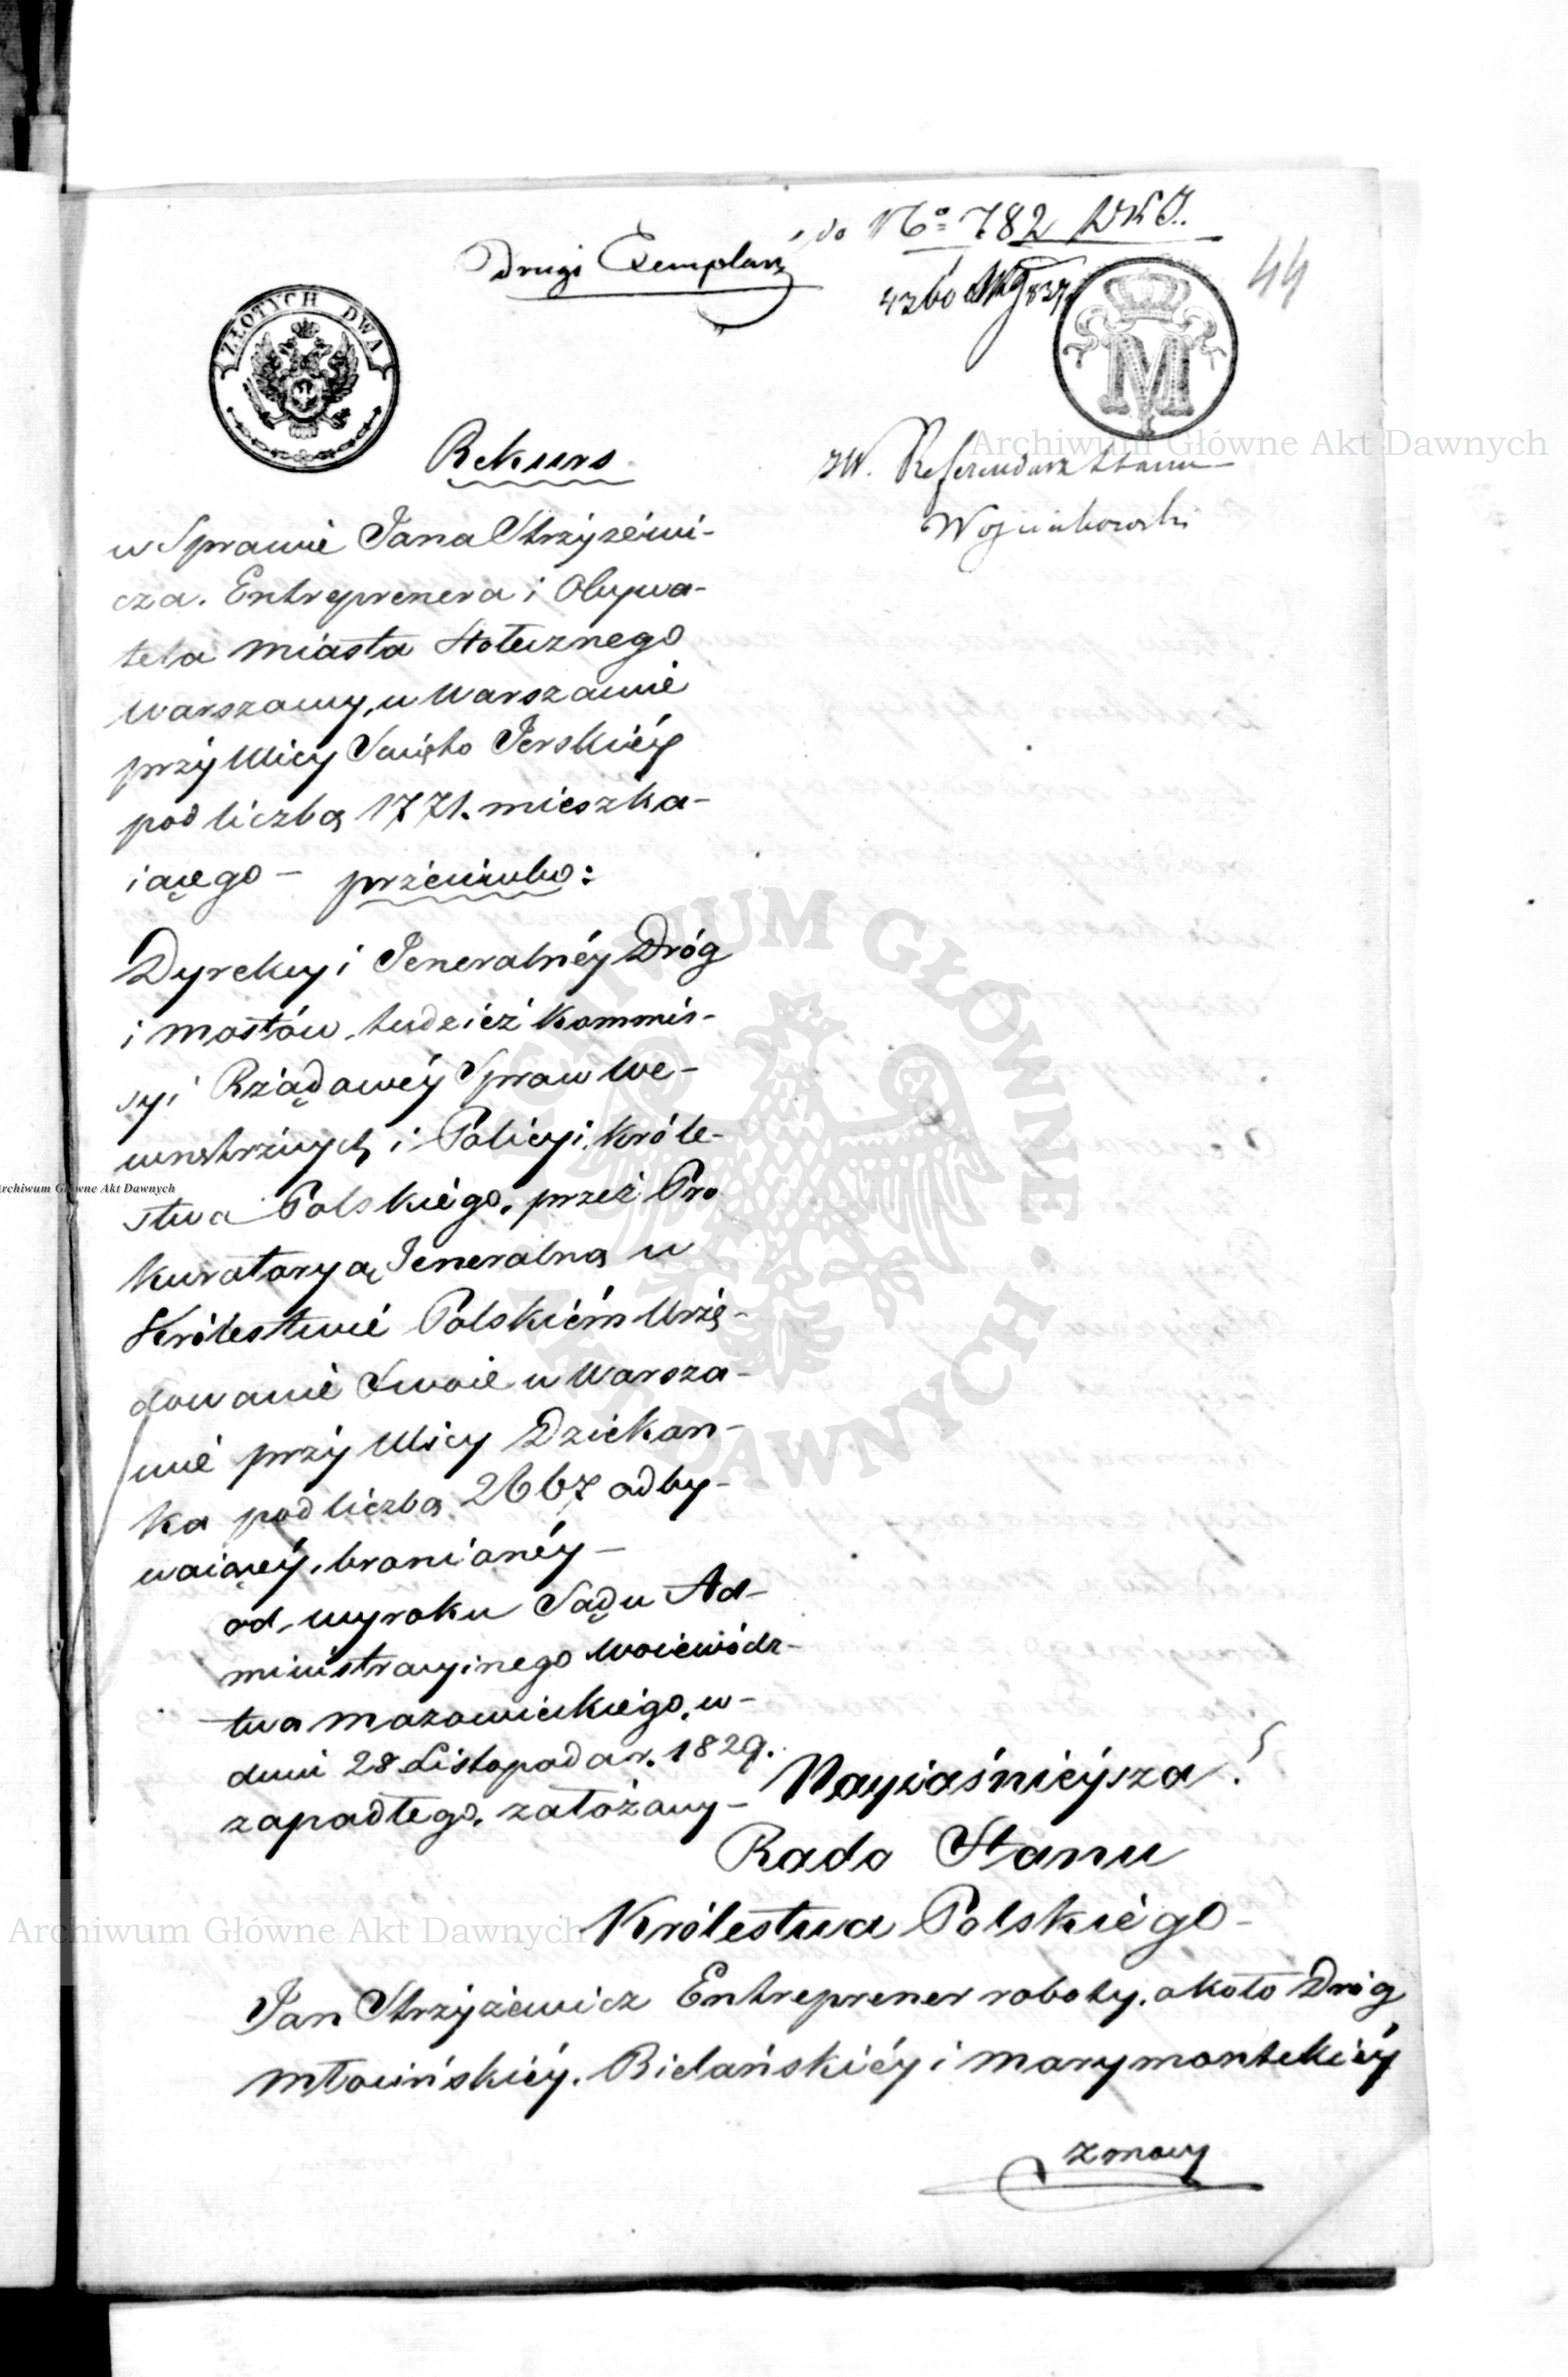 do No 782
Drugi Exemplarz
44
ZŁOTYCH DWA
M
Rekurs
JW. Referendarz Stanu
w Sprawie Jana Strzyżewi-
cza. Entreprenera i Obywa-
tela miasta Stołecznego
Warszawy, w Warszawie
przy Ulicy Święto Jerskiéy
pod liczbą 1771. mieszka-
iącego – przeciwko:
Dyrekcyi Jeneralnéy Dróg
i mostów, tudzież Kommis-
syi Rządowéy Spraw We-
wnętrznych i Policyi Króle-
stwa Polskiego, przez Pro
kuratoryą Jeneralną w
Królestwie Polskiém Urzę-
dowanie Swoie w Warsza-
wie przy Ulicy Dziekan-
ka pod liczbą 2667 odby-
waiącéy, bronionéy –
od wyroku Sądu Ad-
ministracyinego Woiewódz-
twa mazowieckiego, w-
dniu 28 Listopada r. 1829.
zapadłego, założony –
Nayiaśnieysza!
Rado Stanu
Królestwa Polskiego –
Jan Strzyżewicz Entreprener roboty, około Dróg
młocińskiéy, Bielańskiéy i marymontskiéy
z mocy
Archiwum Główne Akt Dawnych
Archiwum Główne Akt Dawnych
Archiwum Główne Akt Dawnych
ARCHIWUM GŁÓWNE AKT DAWNYCH